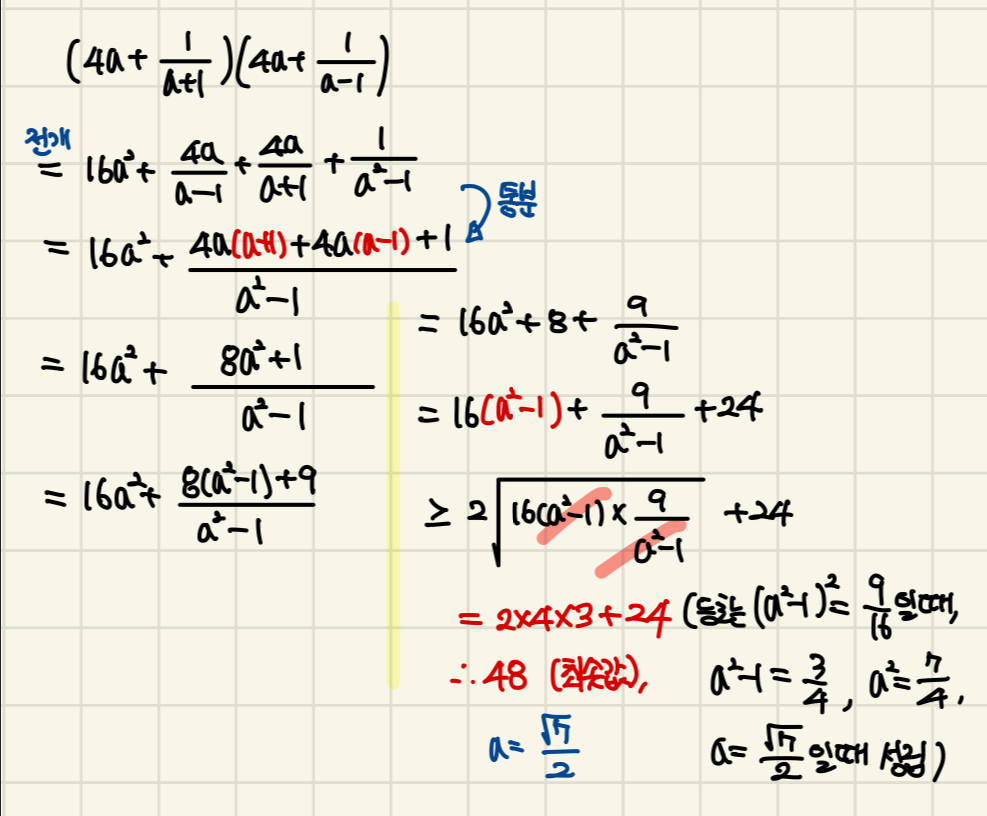 (4a + 1/(a+1))(4a + 1/(a-1))
전개
= 16a² + 4a/(a-1) + 4a/(a+1) + 1/(a²-1)
통분
= 16a² + (4a(a+1) + 4a(a-1) + 1)/(a²-1)
= 16a² + (8a²+1)/(a²-1)
= 16a² + (8(a²-1)+9)/(a²-1)
= 16a² + 8 + 9/(a²-1)
= 16(a²-1) + 9/(a²-1) + 24
≥ 2√(16(a²-1) × 9/(a²-1)) + 24
= 2×4×3+24 (등호는 (a²-1)² = 9/16 일때,
∴ 48 (최솟값), a²-1 = 3/4, a² = 7/4,
a = √7/2 a = √7/2 일때 성립)